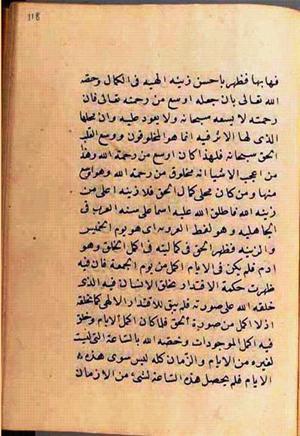 118
فها بها فظهر باحسن زينه الهيه فى الكمال وخصه
الله تعالى بان جعله اوسع من رحمته تعالى فان
رحمته لا تسعه سبحانه ولا يعود عليه وان محلها
الذى لها الاثر فيه انما هو المخلوقون ووسع القلب
الحق سبحانه فلهذا كان اوسع من رحمة الله وهذا
من اعجب الاشيا انه مخلوق من رحمة الله وهو اوسع
منها ومن كان محلى كمال الحق فلا زينه اعلى من
زينه الله فاطلق الله عليه اسما على سنه العرب فى
الجاهليه وهو لفظ العروبه اى هو يوم الحسن
والزينه فظهر الحق فى كماليته فى اكمل الخلق وهو
ادم فلم يكن فى الايام اكمل من يوم الجمعة فان فيه
ظهرت حكمة الاقتدار بخلق الانسان فيه الذى
خلقه الله على صورته فلم يبق للاقتدار الالهى كمال يخلقه
اذ لا اكمل من صورة الحق فلما كان اكمل الايام وخلق
فيه اكمل الموجودات وخصه الله بالساعة التى ليست
لغيره من الايام والزمان كله ليس سوى هذه
الايام فلم يحصل هذه الساعة لشئ من الازمان